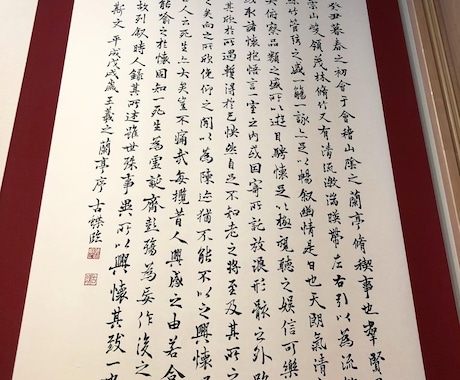 癸丑暮春之初會于會稽山陰之蘭亭脩稧事也羣賢
崇山峻領茂林脩竹又有清流激湍暎帶左右引以為流
絲竹管弦之盛一觴一詠亦足以暢叙幽情是日也天朗氣清
俯察品類之盛所以遊目騁懷足以極視聽之娛信可樂
或取諸懷抱悟言一室之内或因寄所託放浪形骸之外雖
其欣於所遇暫得於己快然自足不知老之將至及其所之
之矣向之所欣俛仰之間以為陳迹猶不能不以之興懷
云死生亦大矣豈不痛哉每攬昔人興感之由若合
能喻之於懷固知一死生為虛誕齊彭殤為妄作後之
故列叙時人錄其所述雖世殊事異所以興懷其致一也
斯文 平成戊戌歳 王羲之蘭亭序 臨